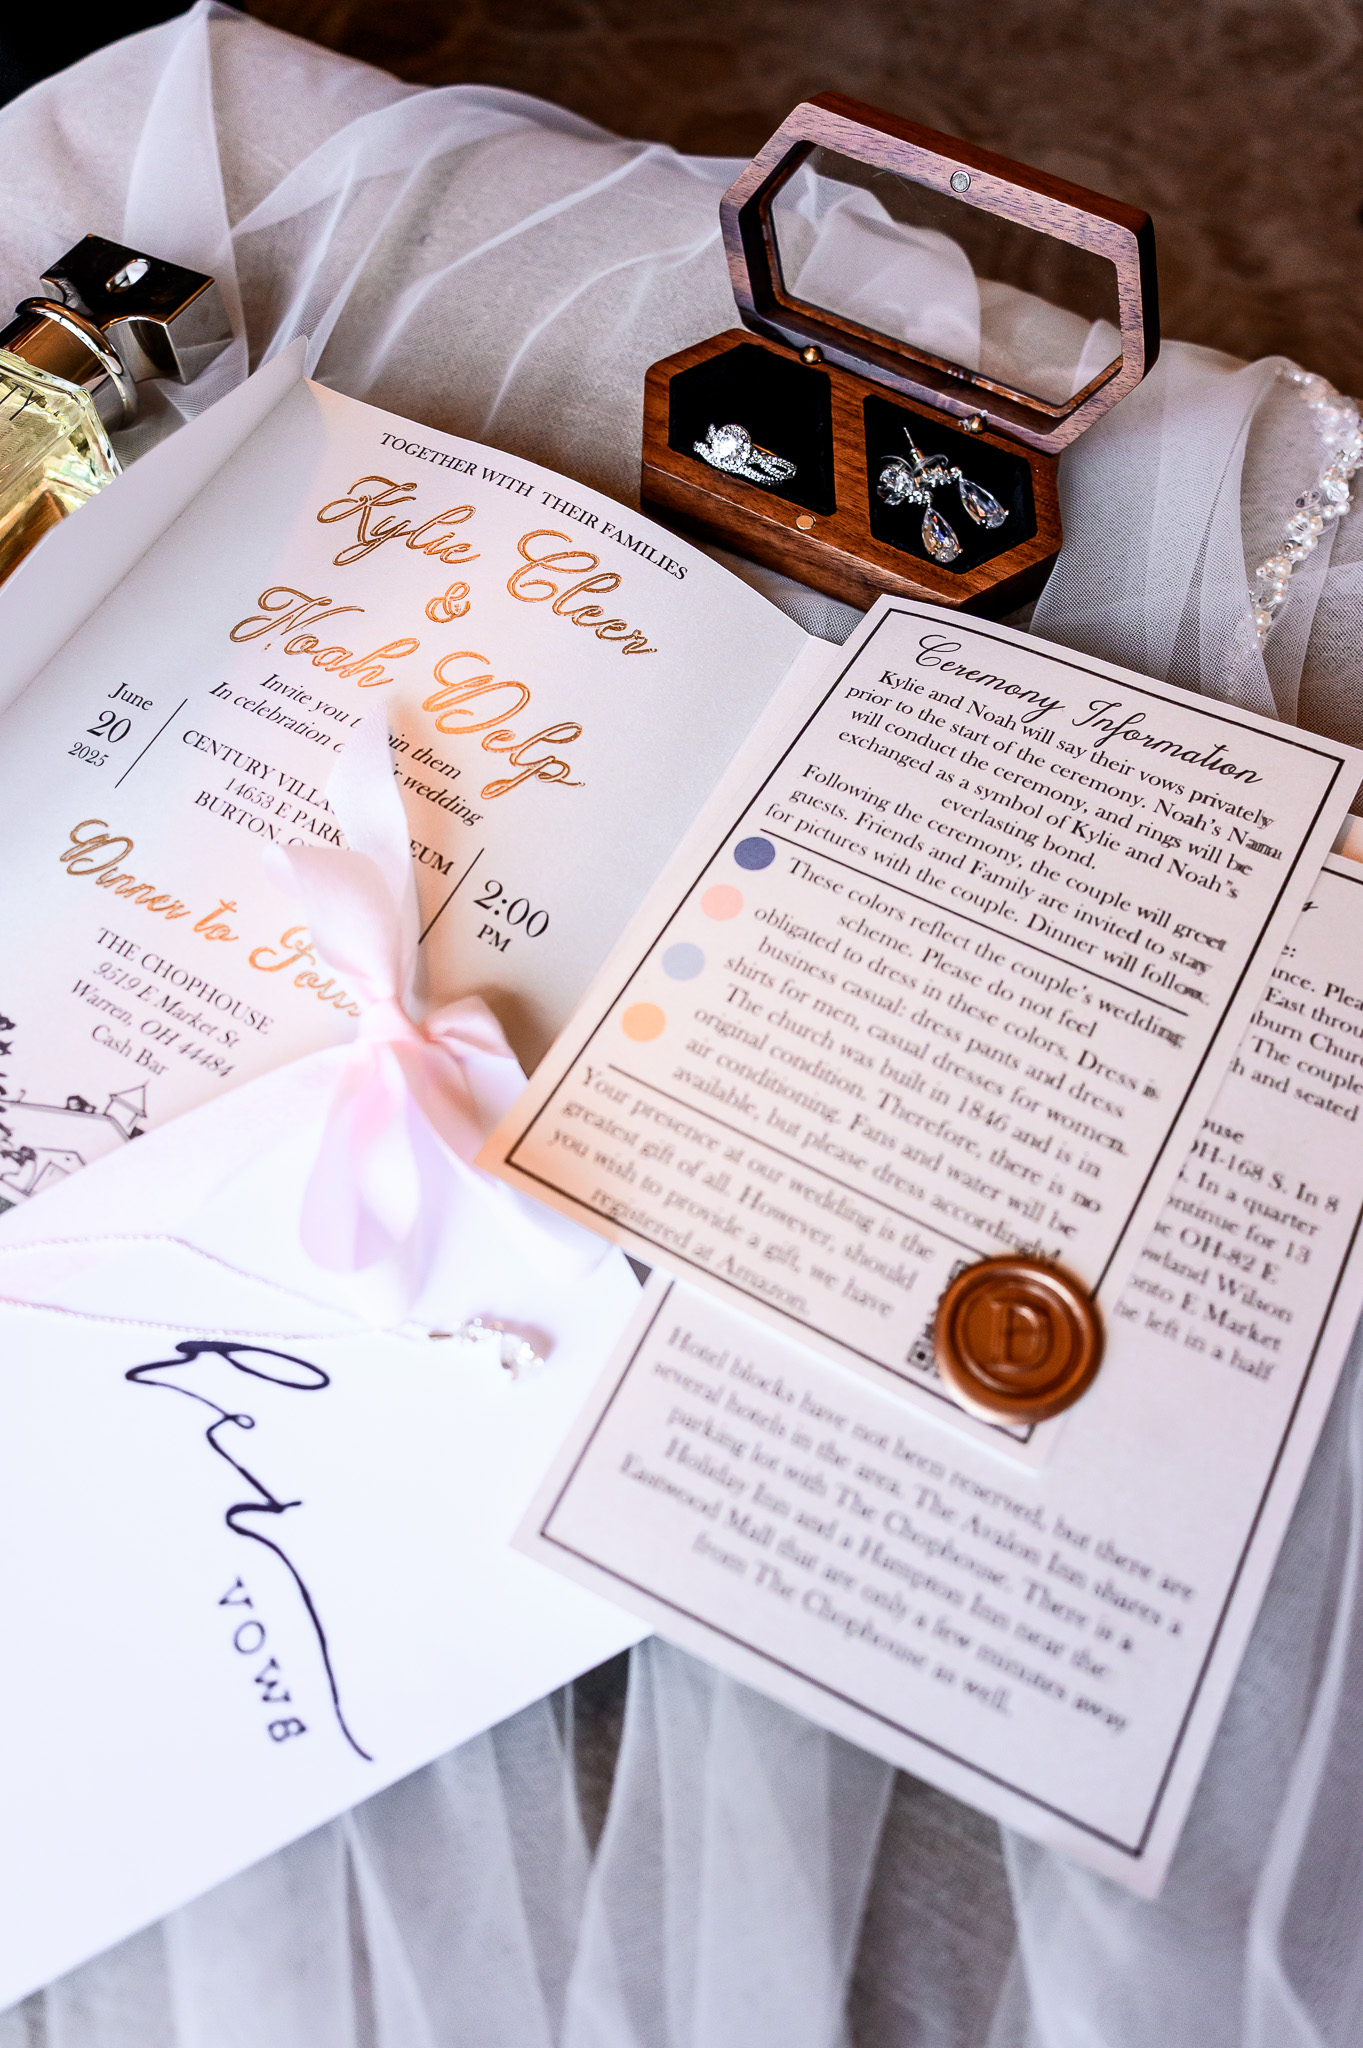 TOGETHER WITH THEIR FAMILIES
Kylie Cleer
&
Noah Welp
Invite you t in them
In celebration o r wedding
June
20
2025
CENTURY VILLA EUM
14653 E PARK
BURTON, O
2:00
PM
Dinner to Follow
THE CHOPHOUSE
9519 E Market St
Warren, OH 44484
Cash Bar
Ceremony Information
Kylie and Noah will say their vows privately
prior to the start of the ceremony. Noah's Nana
will conduct the ceremony, and rings will be
exchanged as a symbol of Kylie and Noah's
everlasting bond.
Following the ceremony, the couple will greet
guests. Friends and Family are invited to stay
for pictures with the couple. Dinner will follow.
These colors reflect the couple's wedding
scheme. Please do not feel
obligated to dress in these colors. Dress is
business casual: dress pants and dress
shirts for men, casual dresses for women.
The church was built in 1846 and is in
original condition. Therefore, there is no
air conditioning. Fans and water will be
available, but please dress accordingly!
Your presence at our wedding is the
greatest gift of all. However, should
you wish to provide a gift, we have
registered at Amazon.
D
nce. Plea
East throu
burn Churc
The couple
h and seated
ouse
OH-168 S. In 8
. In a quarter
ontinue for 13
OH-82 E
wland Wilson
onto E Market
he left in a half
Hotel blocks have not been reserved, but there are
several hotels in the area. The Avalon Inn shares a
parking lot with The Chophouse. There is a
Holiday Inn and a Hampton Inn near the
Eastwood Mall that are only a few minutes away
from The Chophouse as well.
her
VOWS